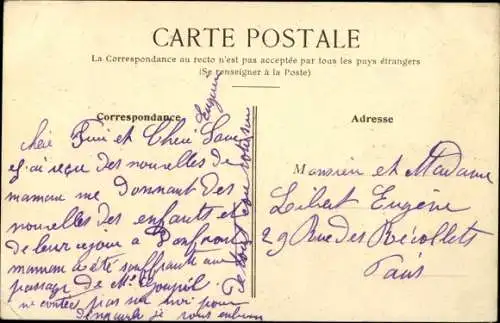 CARTE POSTALE
La Correspondance au recto n'est pas acceptée par tous les pays étrangers
(Se renseigner à la Poste)
Correspondance
et Cher
j'ai reçue des nouvelles de
maman me donnant des
nouvelles des enfants et
de leur sejour a Domfront
maman a été souffrante au
passage de Mr Goupil
ne contez pas sur moi pour
je vous
Adresse
Monsieur et Madame
Libert Eugène
29 Rue des Récollets
Paris